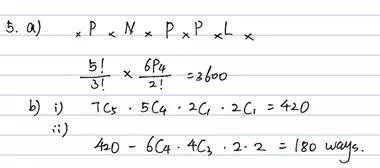 5. a) × P × N × P × P × L ×
5!/3! × 6P4/2! = 3600
b) i) 7C5 · 5C4 · 2C1 · 2C1 = 420
ii)
420 - 6C4 · 4C3 · 2 · 2 = 180 ways.